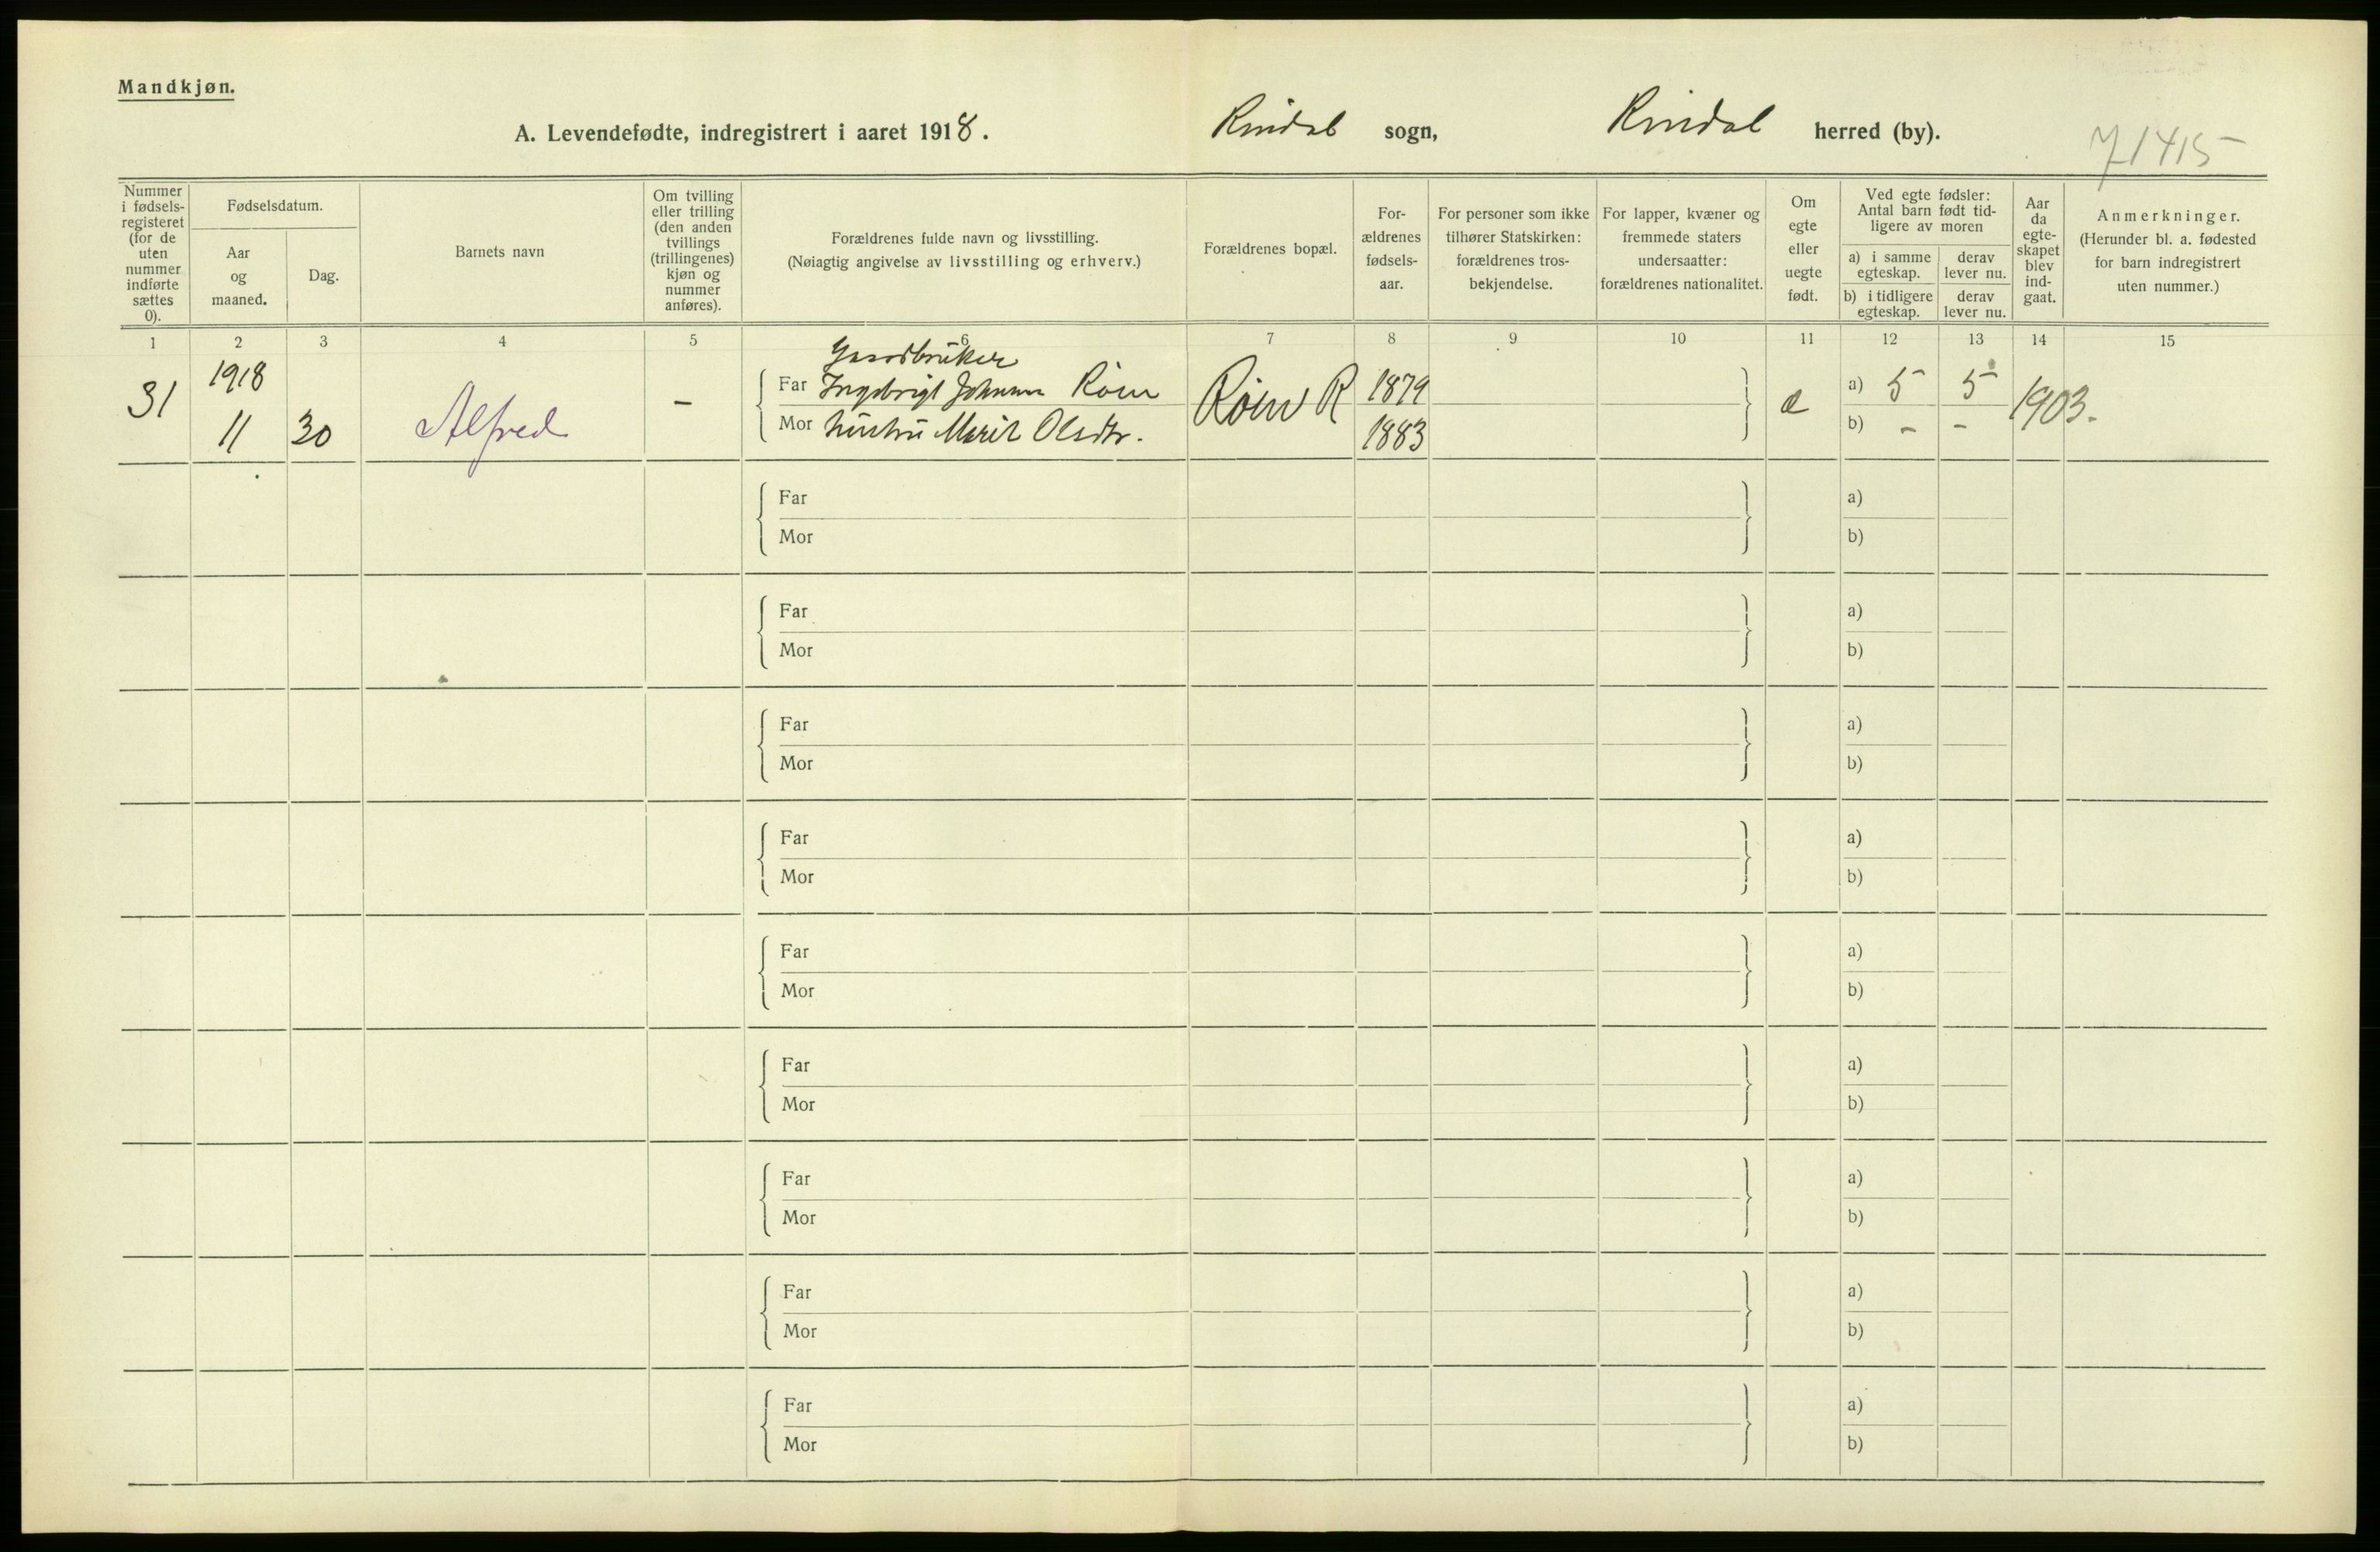 Mandkjøn.
A. Levendefødte, indregistrert i aaret 1918. Rindal sogn, Rindal herred (by).
71415
Nummer i fødsels-registeret (for de uten nummer indførte sættes 0).
Fødselsdatum.
Aar og maaned.
Dag.
Barnets navn
Om tvilling eller trilling (den anden tvillings (trillingenes) kjøn og nummer anføres).
Forældrenes fulde navn og livsstilling.
(Nøiagtig angivelse av livsstilling og erhverv.)
Forældrenes bopæl.
For-ældrenes fødsels-aar.
For personer som ikke tilhører Statskirken: forældrenes tros-bekjendelse.
For lapper, kvæner og fremmede staters undersaatter: forældrenes nationalitet.
Om egte eller uegte født.
Ved egte fødsler: Antal barn født tid-ligere av moren
a) i samme egteskap.
derav lever nu.
b) i tidligere egteskap.
derav lever nu.
Aar da egte-skapet blev ind-gaat.
Anmerkninger.
(Herunder bl. a. fødested for barn indregistrert uten nummer.)
1 2 3 4 5 6 7 8 9 10 11 12 13 14 15
Gaardbruker
31 1918 Far Ingebrigt Johnsen Røen Røen R 1879 e a) 5 5 1903.
11 30 Alfred - Mor hustru Marit Olsdtr. 1883 b) - -
Far a)
Mor b)
Far a)
Mor b)
Far a)
Mor b)
Far a)
Mor b)
Far a)
Mor b)
Far a)
Mor b)
Far a)
Mor b)
Far a)
Mor b)
Far a)
Mor b)